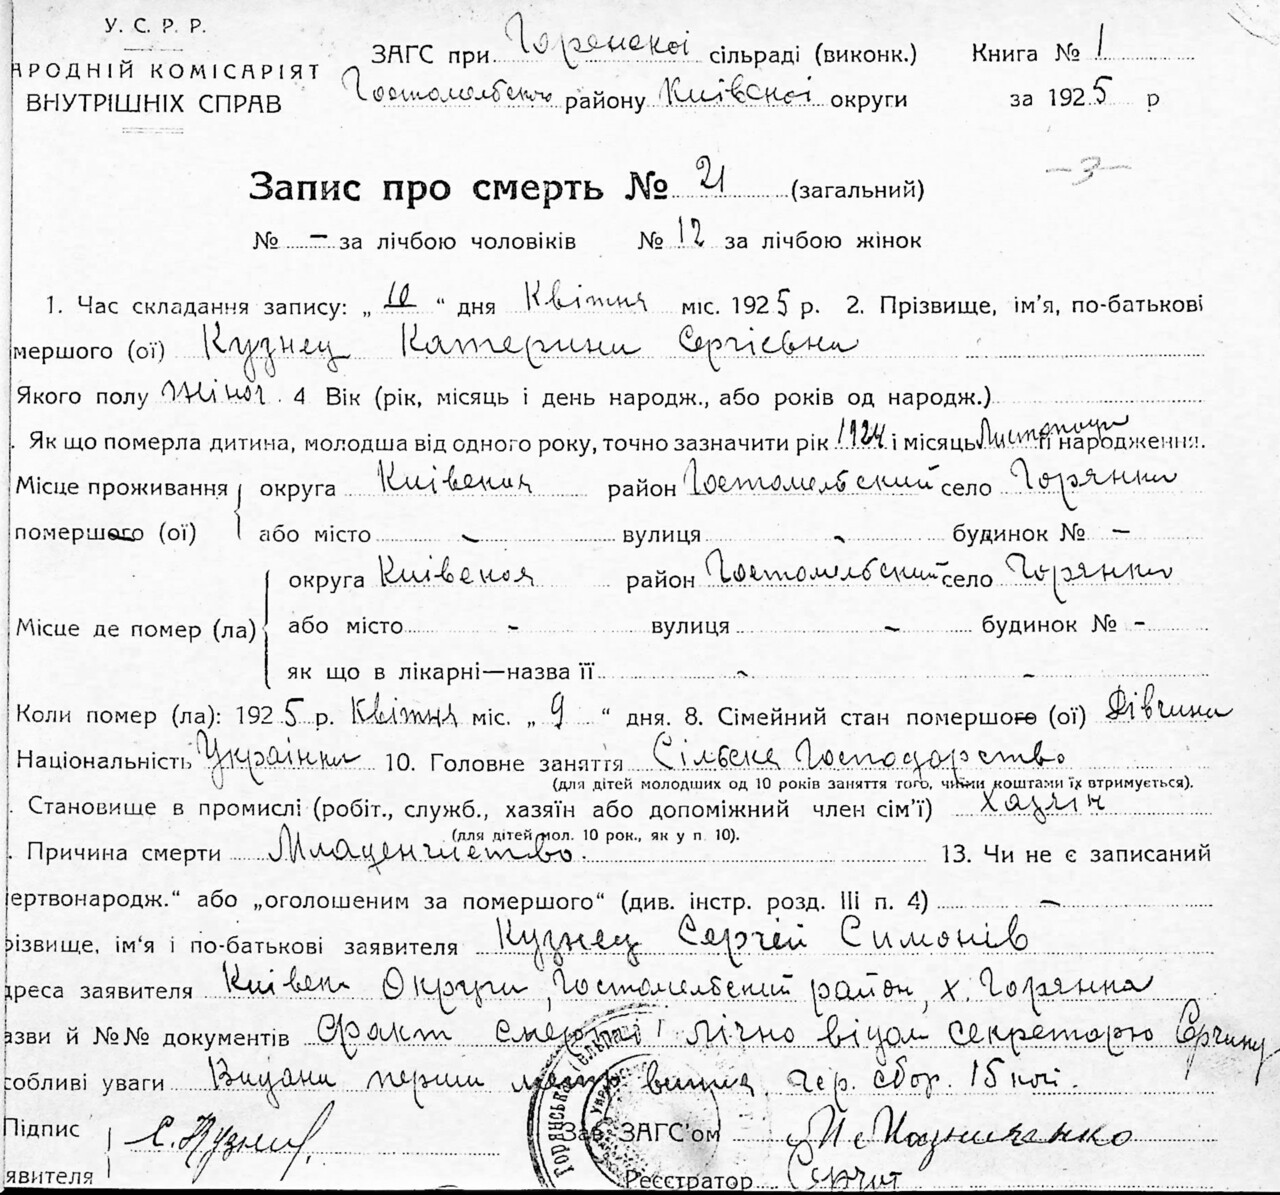 У. С. Р. Р.
АРОДНІЙ КОМІСАРІЯТ
ВНУТРІШНІХ СПРАВ
ЗАГС при Горенскоі сільраді (виконк.) Книга № 1
Гостомельського району Київскоі округи за 1925 р
-3-
Запис про смерть № 21 (загальний)
№ – за лічбою чоловіків № 12 за лічбою жінок
1. Час складання запису: „10“ дня Квітня міс. 1925 р. 2. Прізвище, ім'я, по-батькові
мершого (ої) Кузнец Катерина Сергієвна
Якого полу жіноч. 4 Вік (рік, місяць і день народж., або років од народж.)
. Як що померла дитина, молодша від одного року, точно зазначити рік 1924 і місяць Листопади її народження.
Місце проживання помершого (ої) округа Киівская район Гостомельский село Горянка
або місто - вулиця - будинок № –
Місце де помер (ла) округа Киівская район Гостомельский село Горянка
або місто - вулиця - будинок № -
як що в лікарні—назва її - -
Коли помер (ла): 1925 р. Квітня міс. „9“ дня. 8. Сімейний стан помершого (ої) Дівчина
Національність Украінка 10. Головне заняття Сільске Господарство
(для дітей молодших од 10 років заняття того, чиїми коштами їх втримується).
. Становище в промислі (робіт., служб., хазяїн або допоміжний член сім'ї) хазяін
(для дітей мол. 10 рок., як у п. 10).
. Причина смерти Младенчиство. 13. Чи не є записаний
ертвонародж.“ або „оголошеним за помершого“ (див. інстр. розд. III п. 4) –
різвище, ім'я і по-батькові заявителя Кузнец Сергій Симонів
дреса заявителя Киівск Округи, Гостомельский район, х. Горянка
азви й №№ документів Факт смерти лічно відом секретарю
собливі уваги Видана перши гер. сбор. 15 коп.
Підпис
аявителя С. Кузнец.
Зав. ЗАГС'ом
Реєстратор
ГОРЯНСЬКА СІЛЬРАДА